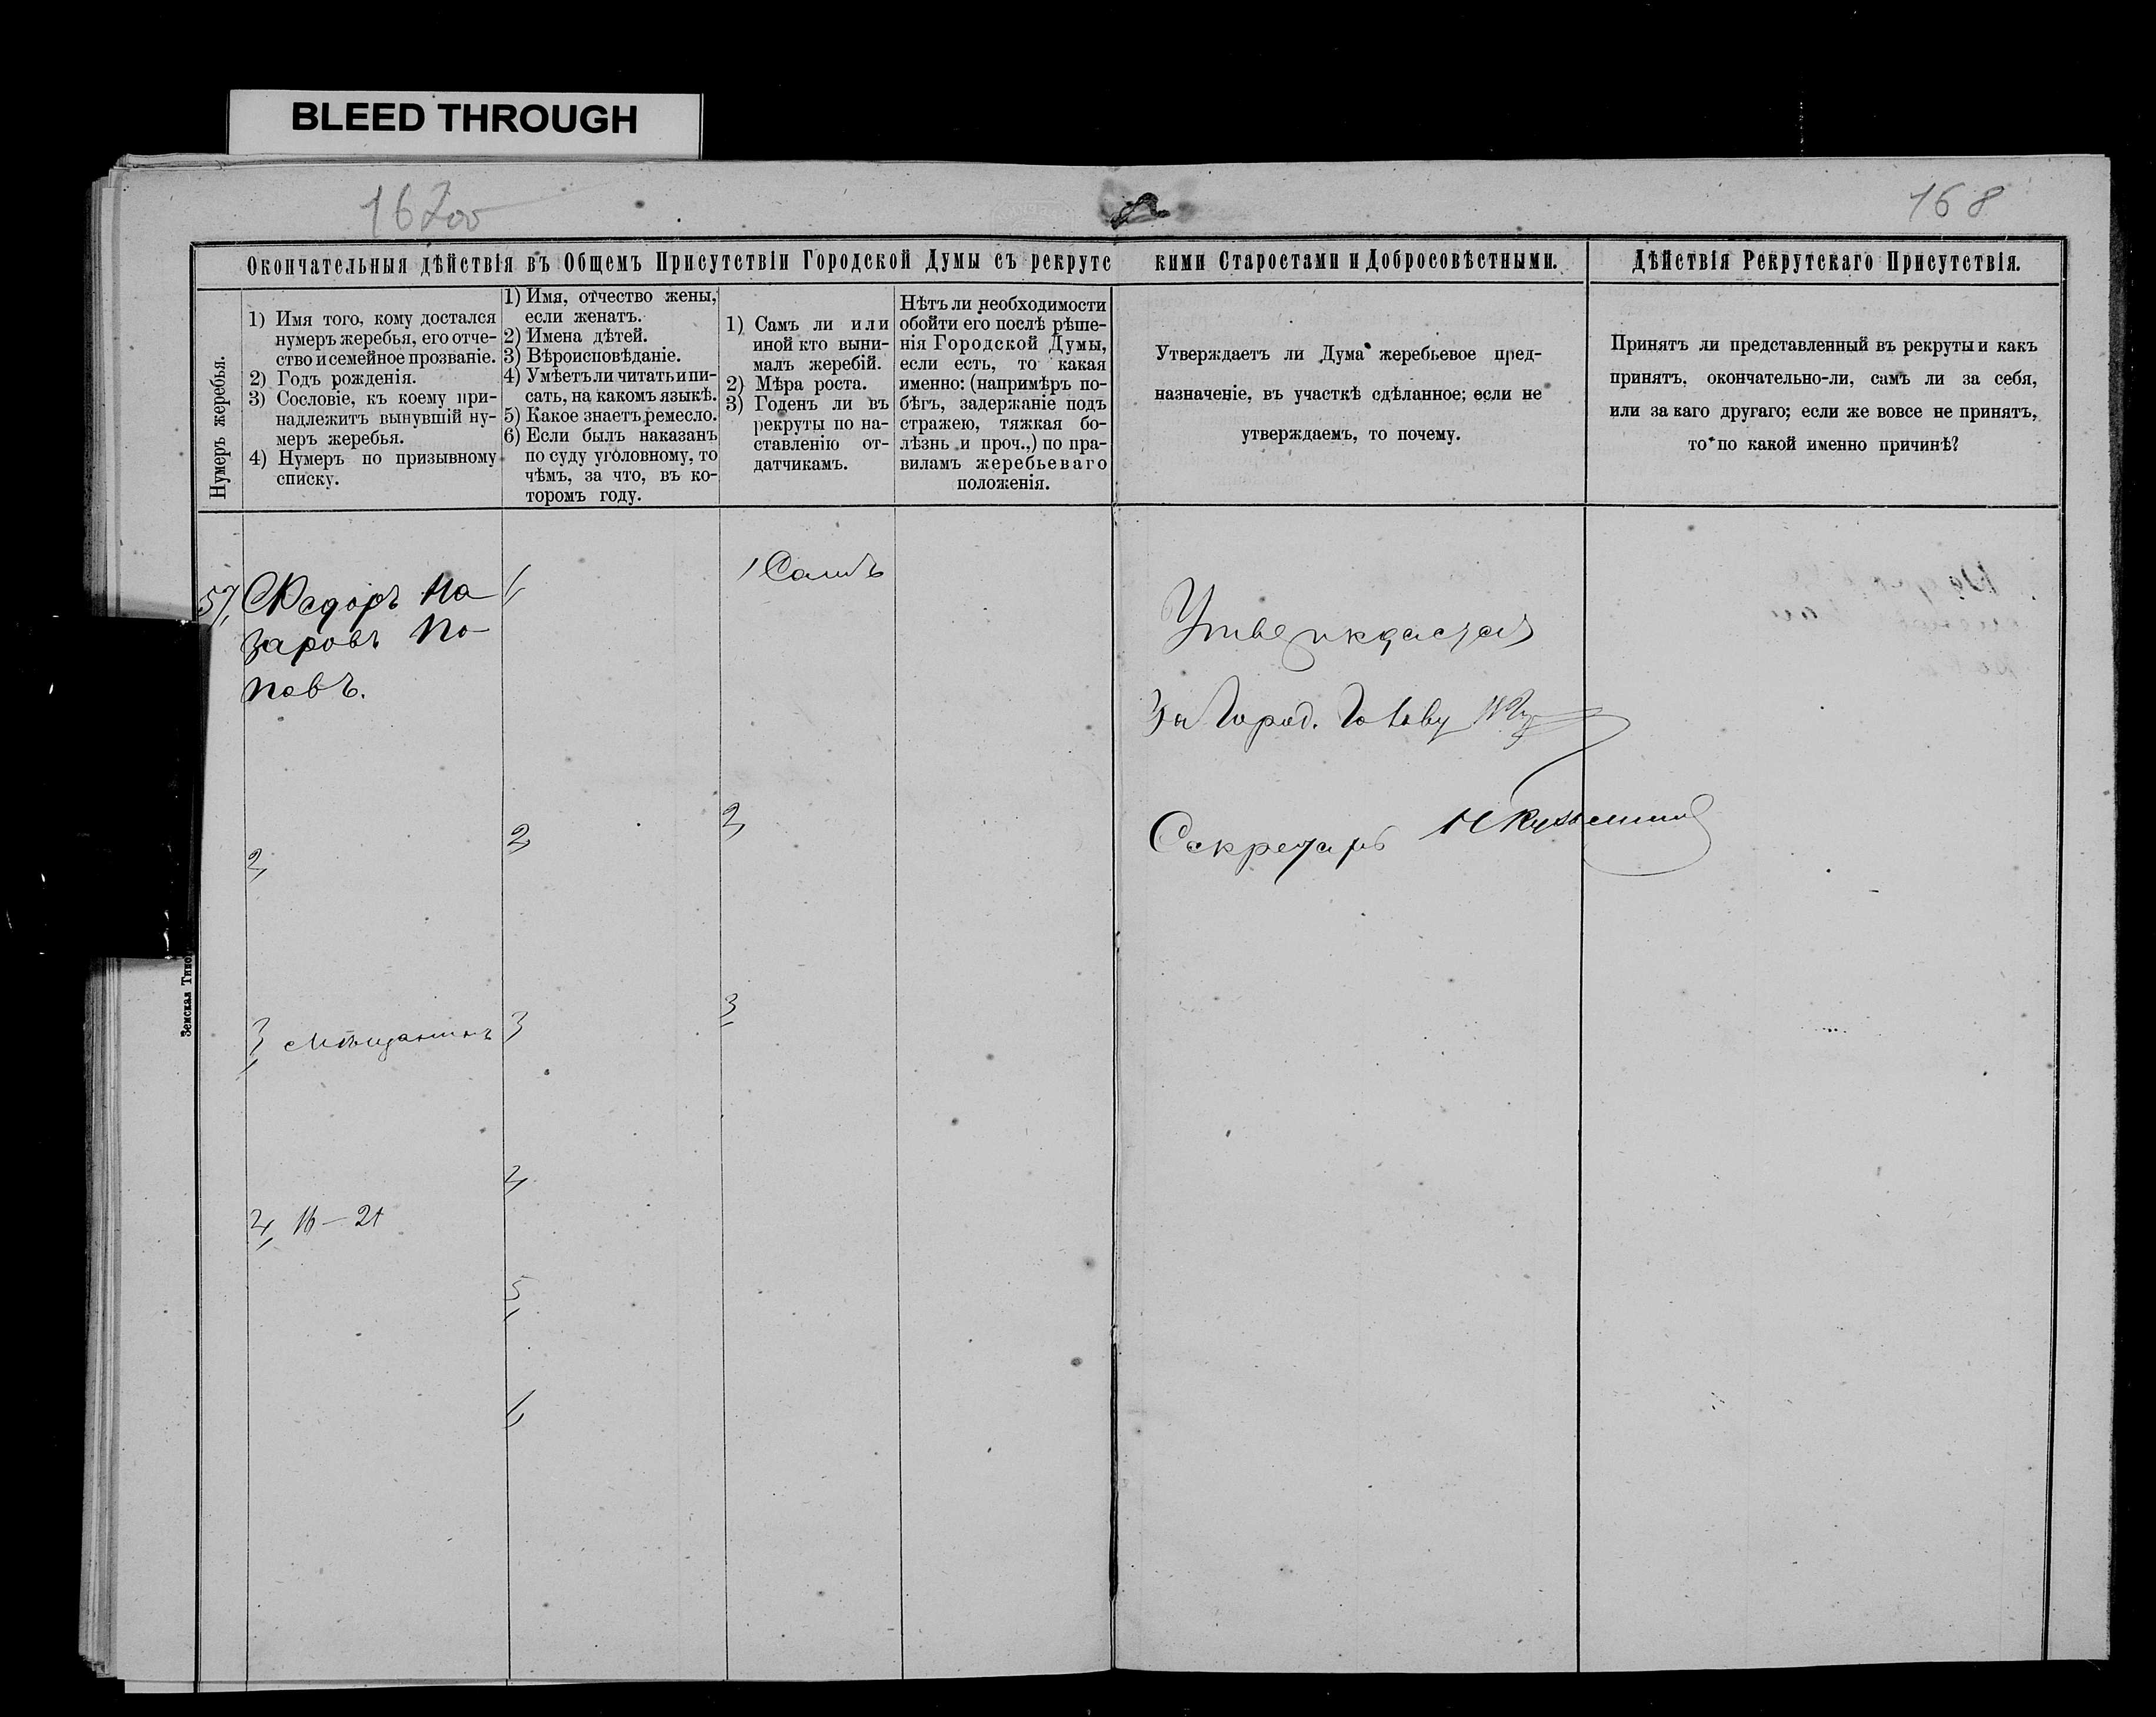 BLEED THROUGH
167об
168
Окончательныя дѣйствія въ Общемъ Присутствіи Городской Думы съ рекрутс
кими Старостами и Добросовѣстными.
Дѣйствія Рекрутскаго Присутствія.
Нумеръ жеребья.
1) Имя того, кому достался
нумеръ жеребья, его отче-
ство и семейное прозваніе.
2) Годъ рожденія.
3) Сословіе, къ коему при-
надлежитъ вынувшій ну-
меръ жеребья.
4) Нумеръ по призывному
списку.
1) Имя, отчество жены,
если женатъ.
2) Имена дѣтей.
3) Вѣроисповѣданіе.
4) Умѣетъ ли читать и пи-
сать, на какомъ языкѣ.
5) Какое знаетъ ремесло.
6) Если былъ наказанъ
по суду уголовному, то
чѣмъ, за что, въ ко-
торомъ году.
1) Самъ ли или
иной кто выни-
малъ жеребій.
2) Мѣра роста.
3) Годенъ ли въ
рекруты по на-
ставленію от-
датчикамъ.
Нѣтъ ли необходимости
обойти его послѣ рѣше-
нія Городской Думы,
если есть, то какая
именно: (напримѣръ по-
бѣгъ, задержаніе подъ
стражею, тяжкая бо-
лѣзнь и проч.,) по пра-
виламъ жеребьеваго
положенія.
Утверждаетъ ли Дума жеребьевое пред-
назначеніе, въ участкѣ сдѣланное; если не
утверждаемъ, то почему.
Принятъ ли представленный въ рекруты и какъ
принятъ, окончательно-ли, самъ ли за себя,
или за каго другаго; если же вовсе не принятъ,
то по какой именно причинѣ?
57,
Ѳедоръ На
заровъ По
повъ.
2,
3, Мѣщанинъ
4, № 21
1,
2,
3,
4,
5,
6,
1 Самъ
2,
3,
Утверждается
За Город. Голову
Секретарь Н Кузьминъ
Земская Типо